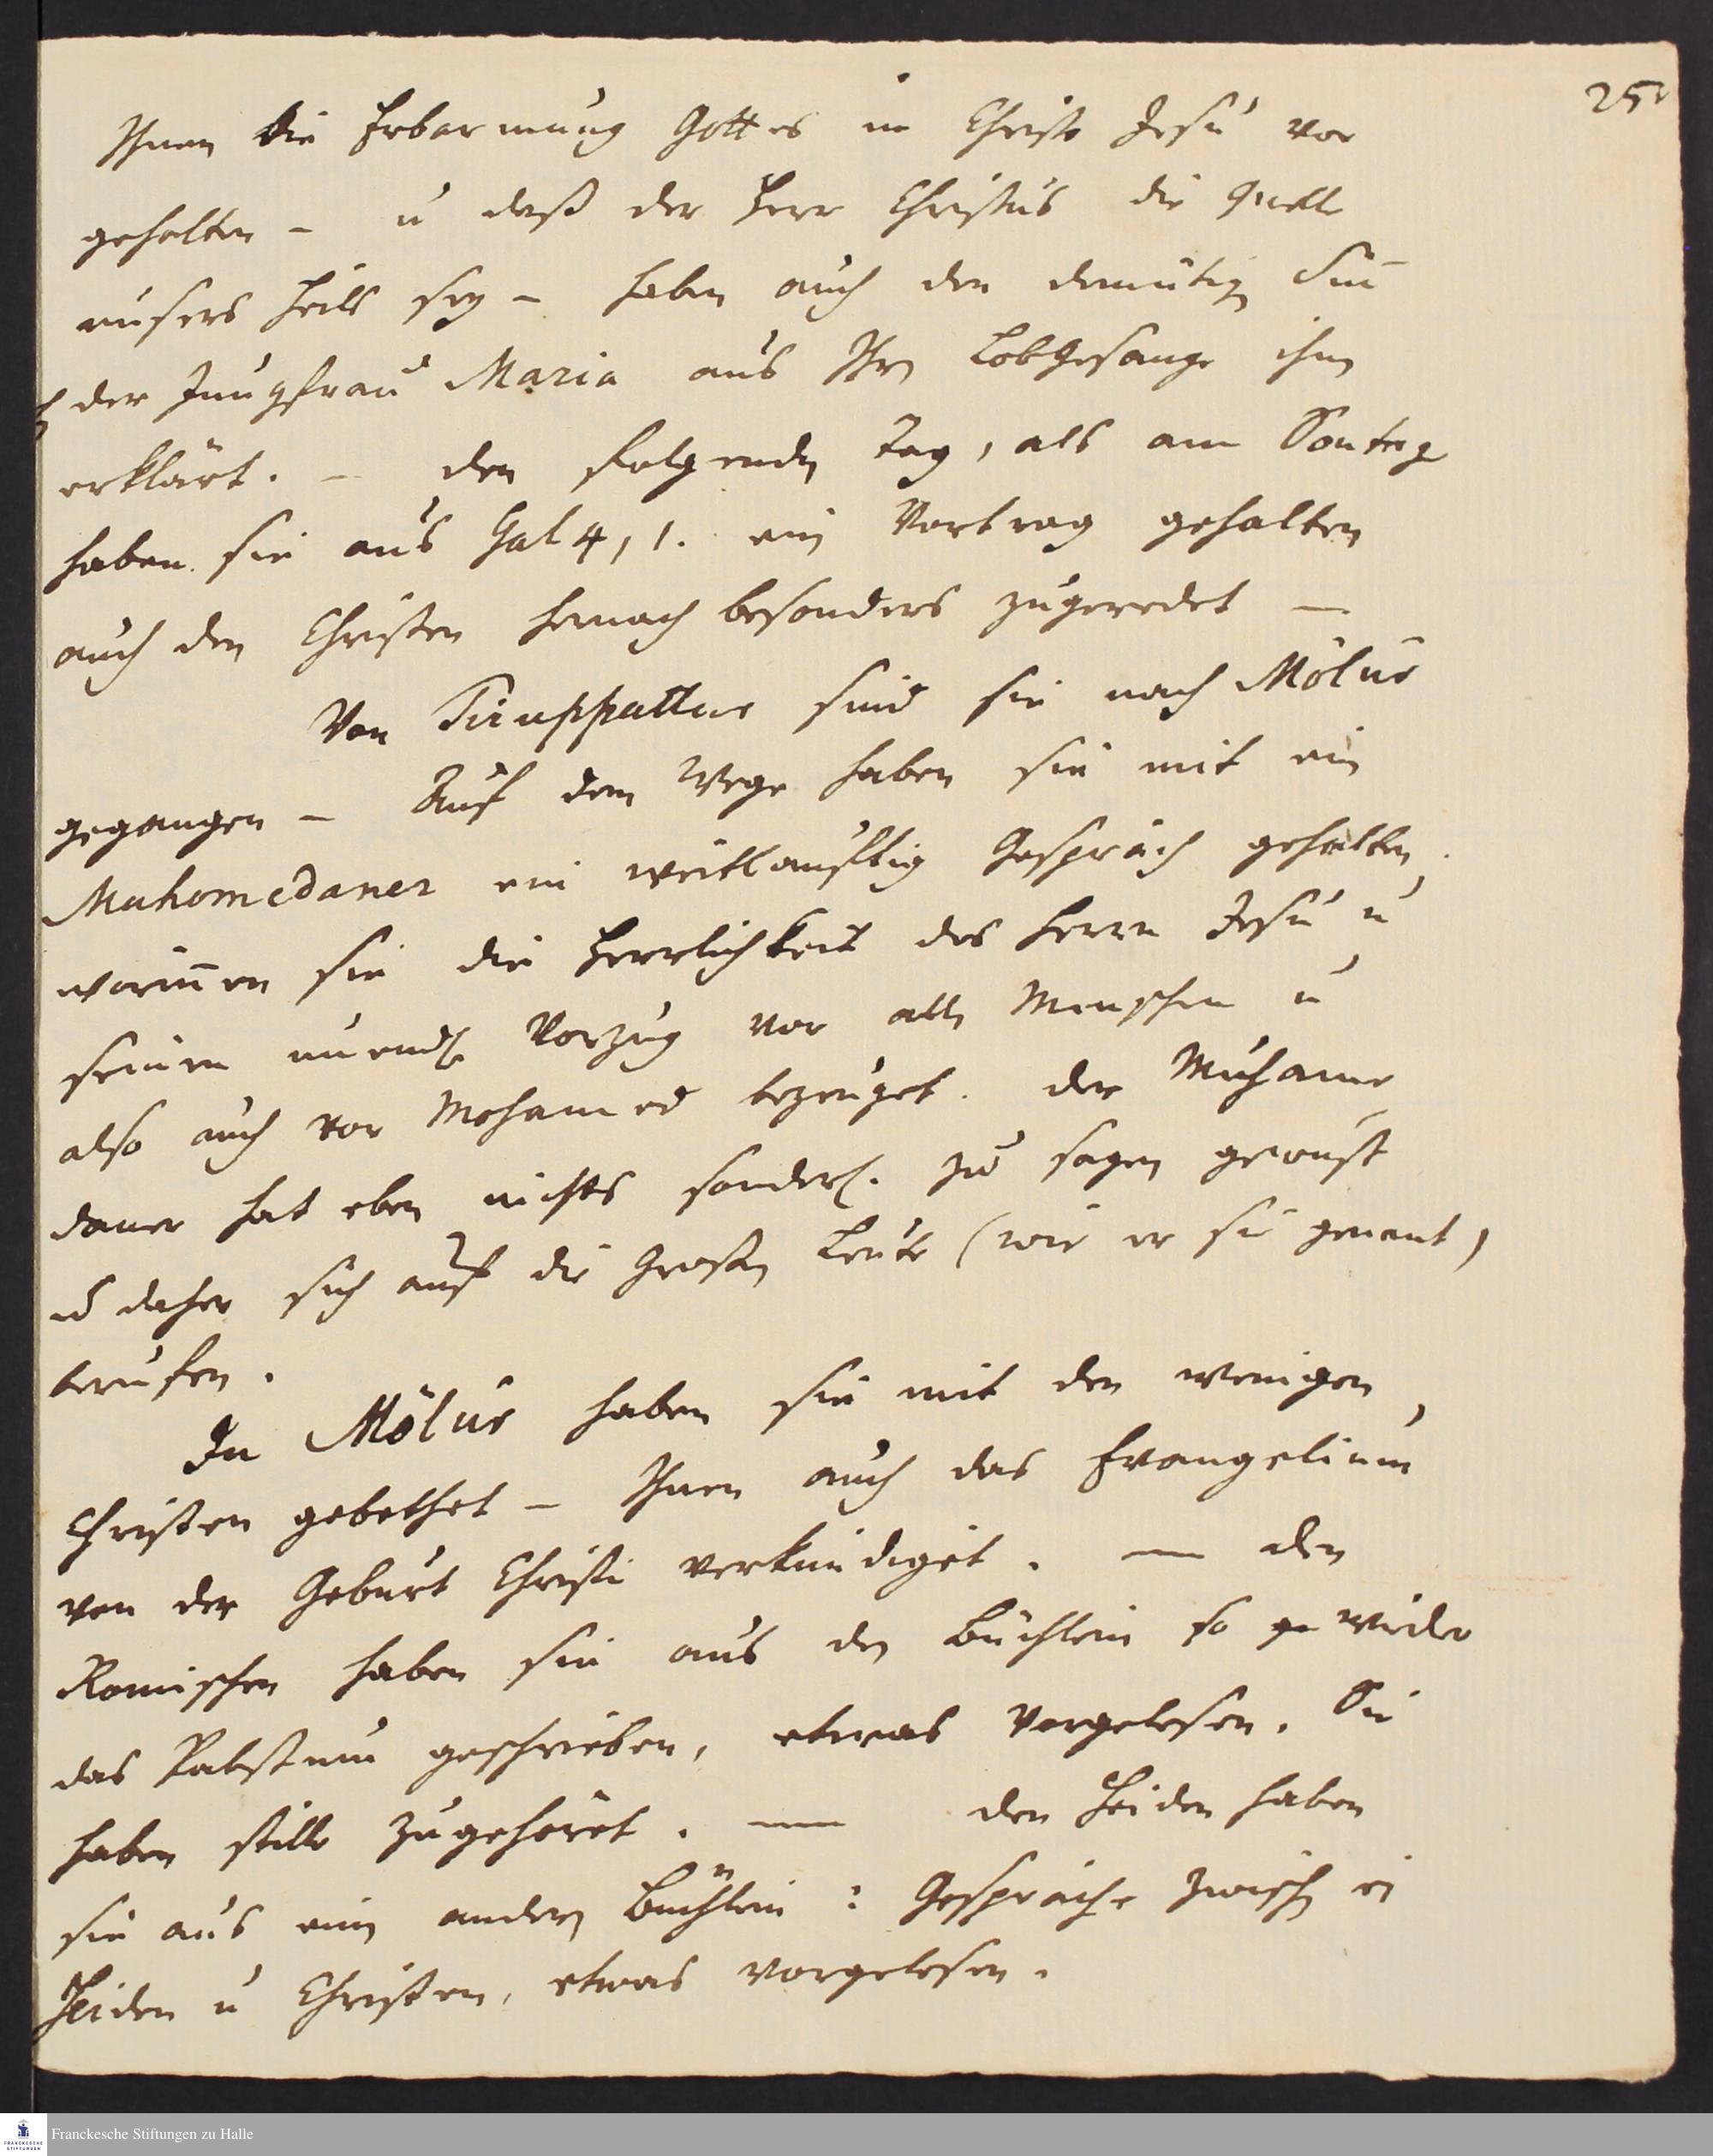 25r
Ihnen die Erbarmung Gottes in Christo Jesu vor
gehalten – u daß der Herr Christus die Quelle
unsers Heils sey – haben auch den demütig Sin̄
der Jungfrau Maria aus Ihrn LobGesange ihnen
erklärt. – den folgenden Tag, als am Sontag
haben sie aus Gal 4, 1. ein Vortrag gehalten
auch den Christen hernach besonders zugeredet —
Von Tiruppattur sind sie nach Mölur
gegangen – Auf dem Wege haben sie mit ein
Muhomedaner ein weitlauftig Gespräch gehalten,
worin̄en sie die Herrlichkeit des Herrn Jesu u
seinen unendl. Vorzug vor allen Menschen u
also auch vor Mohamed bezeuget. der Muhame
daner hat eben nichts sonderl. zu sagen gewust
u daher sich auf die Großen Leute (wie er sie genent)
berufen.
In Mölur haben sie mit den wenigen
Christen gebethet – Ihnen auch das Evangelium
von der Geburt Christi verkündiget. — den
Romischen haben sie aus den Büchlein so wider
das Pabstum geschrieben, etwas vorgelesen. Sie
haben stille zugehöret. — den Heiden haben
sie aus ein andern Büchlein: Gespräche zwisch ei
Heiden u Christen, etwas vorgelesen.
Franckesche Stiftungen zu Halle
FRANCKESCHE
STIFTUNGEN